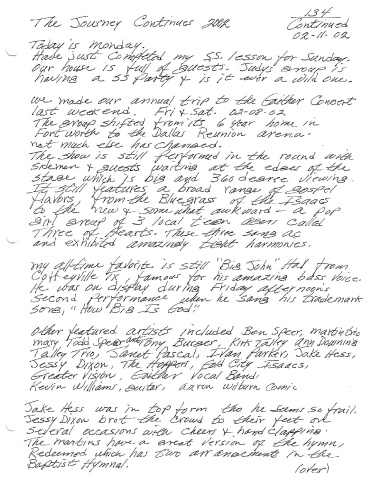 134
The Journey Continues 2002
Continued
02-11-02
Today is monday.
Have Just Completed my SS. lesson for Sunday.
Our house is full of guests. Judys group is
having a SS Party & is it ever a wild one.
we made our annual trip to the Gaither Concert
last weekend. Fri & Sat. 02-08-02
The group shifted from its 6 year home in
Fort worth to the Dallas Reunion arena.
not much else has changed.
The show is still performed in the round with
sidemen & guests waiting at the edges of the
stage which is big and 360 degree viewing.
It still features a broad range of gospel
flavors, from the Bluegrass of the Isaacs
to the new & somewhat awkward - a pop
girl group of 3 local teen teens called
Three of Hearts. These three sung ac
and exhibited amazingly tight harmonies.
my all-time favorite is still "Big John" Hall from
Coffeeville TX, famous for his amazing bass voice.
He was on display during Friday afternoon's
Second Performance when he sang his trademark
song, "How Big Is God"
Other featured artists included Ben Speer, martins trio
mary, Todd Speer and Tony Burger, Kirk Talley ann Downing
Talley Trio, Janet Pascal, Ivan Parker, Jake Hess,
Jessy Dixon, The Hoppers, Gold City Isaacs,
Greater Vision, Gaither Vocal Band.
Kevin Williams, guitar, aaron wilburn comic
Jake Hess was in top form tho he seems so frail.
Jessy Dixon brot the crowd to their feet on
Several occasions with cheers & hand clapping.
The martins have a great version of the hymn,
Redeemed which has two arrangements in the
Baptist Hymnal.
(over)